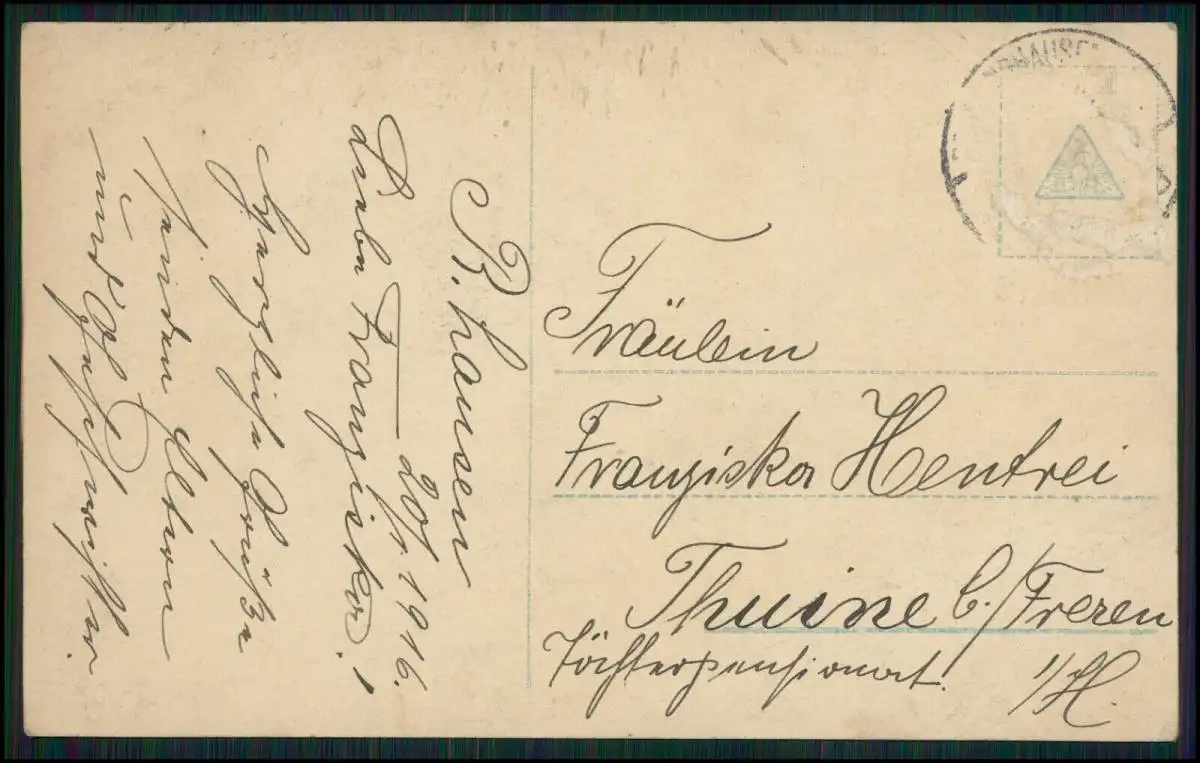 R. hausen
20/1. 1916.
Liebe Franziska!
Herzliche Grüße
senden Eltern
und Geschwister.
HAUSE
Fräulein
Franziska Hentrei
Thuine b./Freren
Töchterpensionat. i/H.